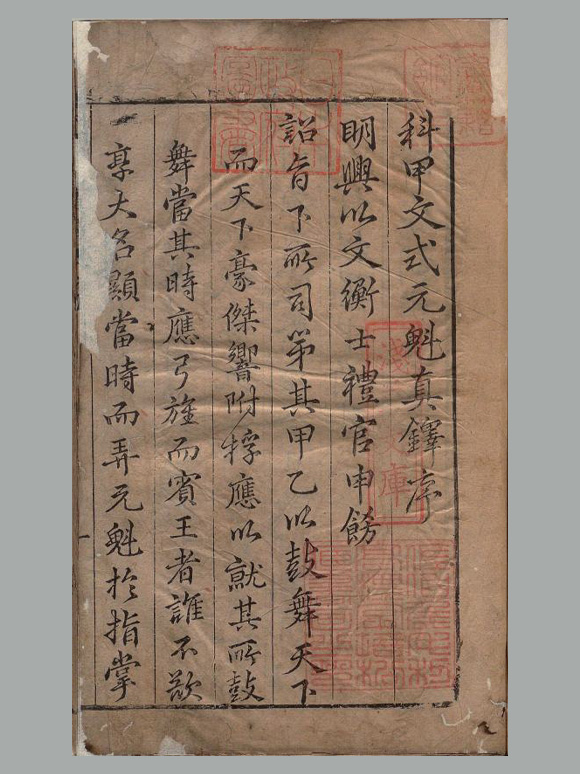 科甲文式元魁真鐸序
明興以文衡士禮官申飭
詔旨下所司第其甲乙以鼓舞天下
而天下豪傑響附桴應以就其所鼓
舞當其時應弓旌而賓王者誰不歆
享大名顯當時而弄元魁扵指掌